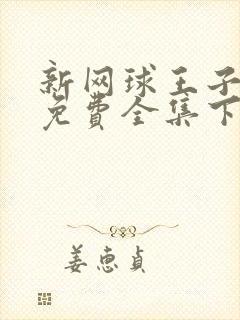 新网球王子
免費全集下
姜恵貞